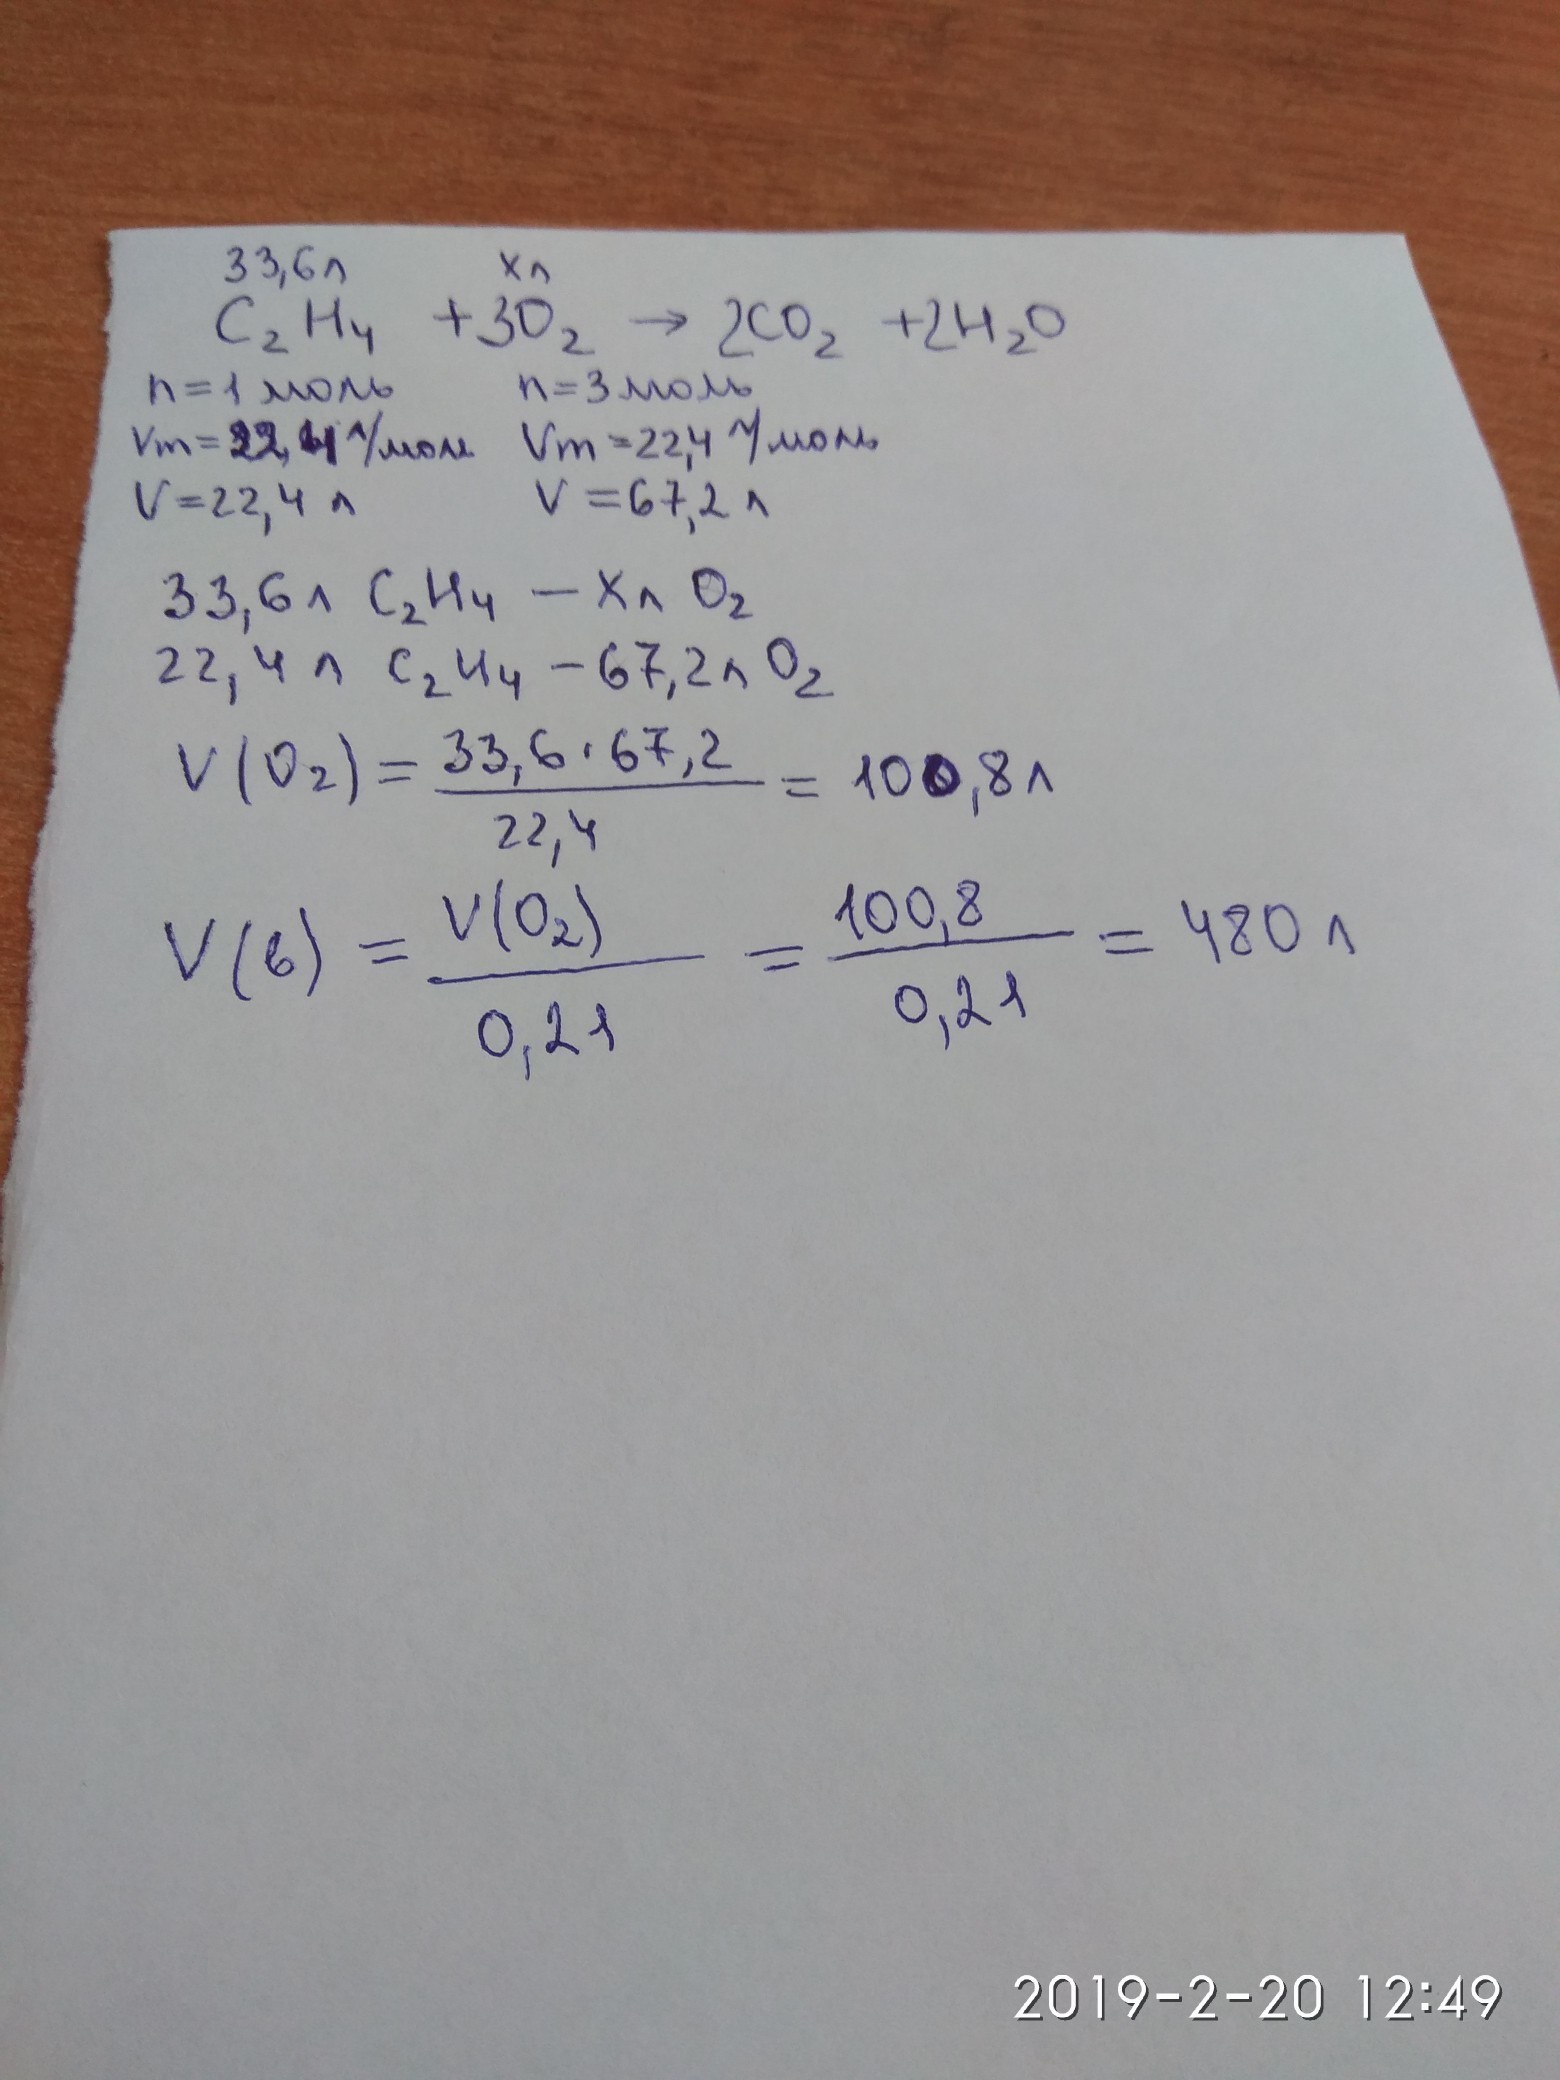 33,6л хл
C₂H₄ +3O₂ → 2CO₂ +2H₂O
n=1 моль n=3 моль
Vm=22,4 л/моль Vm=22,4 л/моль
V=22,4 л V=67,2 л
33,6л C₂H₄ – хл O₂
22,4 л C₂H₄ – 67,2л O₂
V(O₂) = 33,6·67,2 / 22,4 = 100,8л
V(в) = V(O₂) / 0,21 = 100,8 / 0,21 = 480 л
2019-2-20 12:49